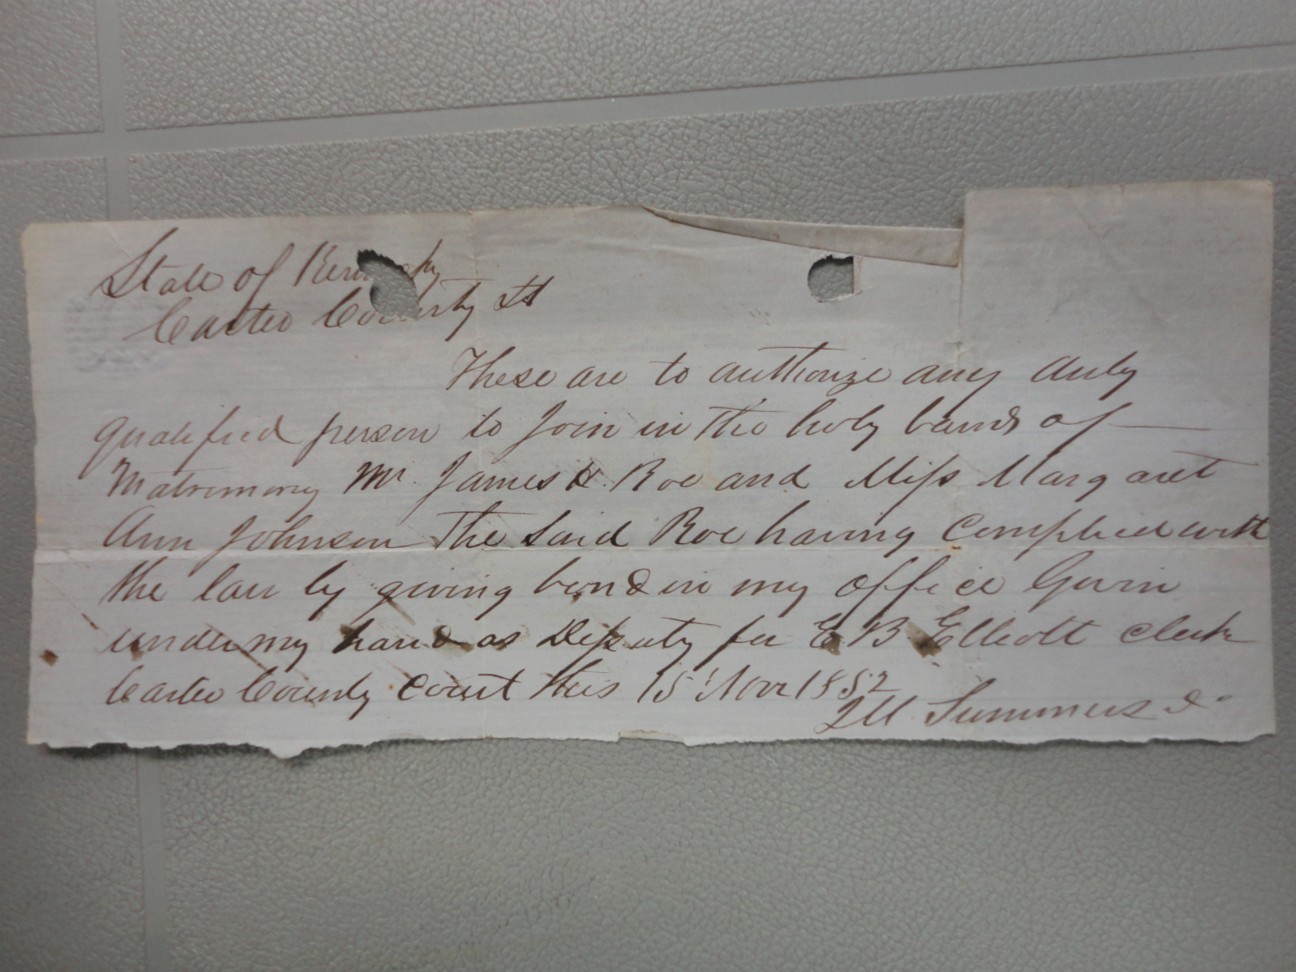 State of Kentucky
Carter County Sct
These are to authorize any duly
qualified person to Join in the holy bands of
Matrimony Mr. James H. Roe and Miss Margaret
Ann Johnson The Said Roe having Complied with
the law by giving bond in my office Givin
under my hand as Deputy for E B Elliott clerk
Carter County Court this 15 Novr 1852
Summers